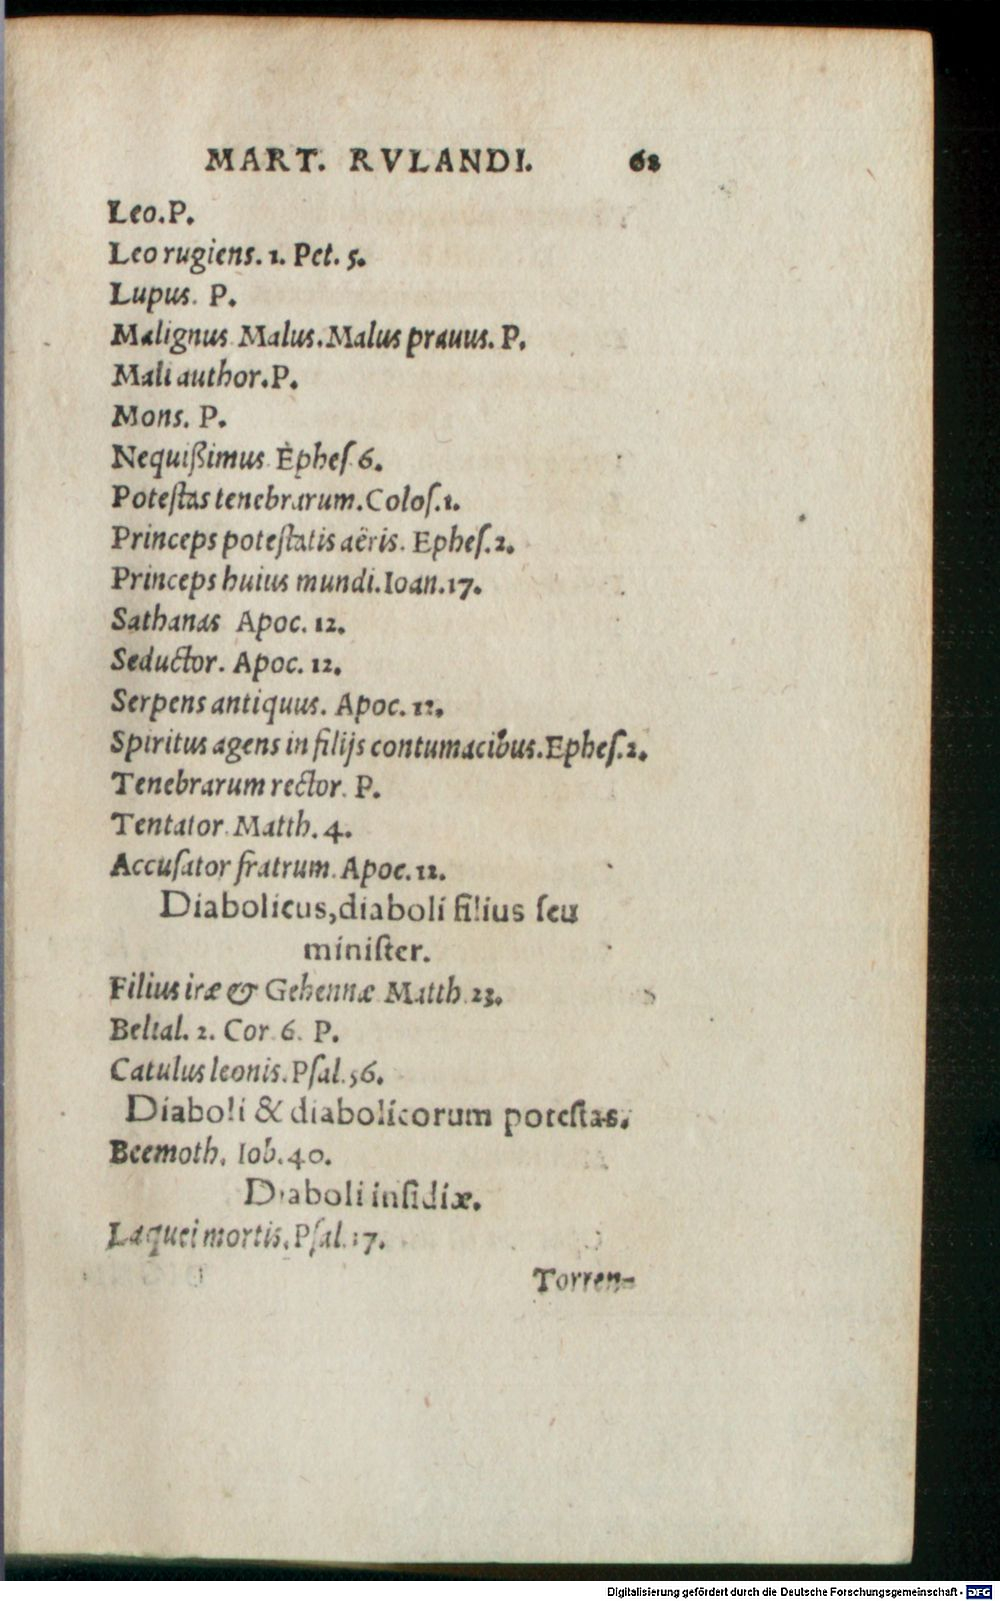 MART. RVLANDI. 68
Leo. P.
Leo rugiens. 1. Pet. 5.
Lupus. P.
Malignus. Malus. Malus prauus. P.
Mali author. P.
Mons. P.
Nequißimus. Ephes. 6.
Poteſtas tenebrarum. Coloſ. 1.
Princeps poteſtatis aëris. Epheſ. 2.
Princeps huius mundi. Ioan. 17.
Sathanas Apoc. 12.
Seductor. Apoc. 12.
Serpens antiquus. Apoc. 12.
Spiritus agens in filijs contumacibus. Epheſ. 2.
Tenebrarum rector. P.
Tentator. Matth. 4.
Accuſator fratrum. Apoc. 12.
Diabolicus, diaboli filius ſeu
miniſter.
Filius iræ & Gehennæ Matth. 23.
Belial. 2. Cor. 6. P.
Catulus leonis. Pſal. 56.
Diaboli & diabolicorum poteſtas.
Beemoth. Iob. 40.
Diaboli inſidiæ.
Laquei mortis. Pſal. 17.
Torren-
Digitalisierung gefördert durch die Deutsche Forschungsgemeinschaft - DFG